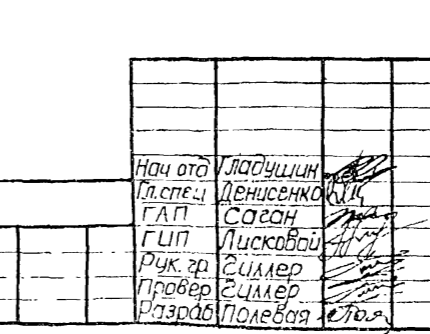 Нач отд Гладушин
Гл.спец Денисенко
ГАП Саган
ГИП Лисковой
Рук.гр Гиллер
Провер Гиллер
Разраб Полевая